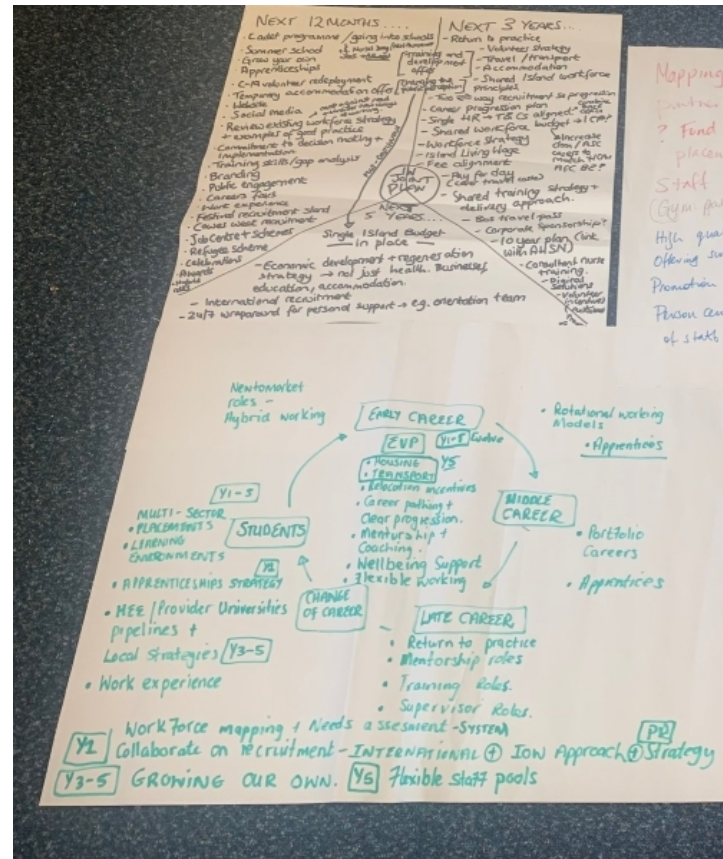 NEXT 12 MONTHS....
• Cadet programme / going into schools
• Summer school
• Grow your own
Apprenticeships
• C-19 volunteer redeployment
• Temporary accommodation offer
• Website
• Social media
• Review existing workforce strategy
+ examples of good practice
• Commitment to decision making +
implementation
• Training skills/gap analysis
• Branding
• Public engagement
• Careers fairs
• Work experience
• Festival recruitment stand
• Cowes week recruitment
• Job Centre + Schemes
• Refugee Scheme
• Celebrations
• Awards
Training and
development
offer
Changing the
NEXT 3 YEARS...
- Return to practice
- Volunteer strategy
- Travel / transport
- Accommodation
- Shared Island workforce
principles
- Two way recruitment & progression
- Career progression plan
- Single HR → T & Cs aligned?
- Shared workforce budget → ICP?
- Workforce strategy
- Island Living Wage
- Fee alignment
- Pay for day
- Shared training strategy +
delivery approach.
- Bus travel pass
- Corporate Sponsorship?
- 10 year plan (link
with AHSN)
- Consultant nurse
training.
- Digital
Solutions
- Volunteer
incentives
IW
JOINT
PLAN
NEXT
5 YEARS...
Single Island Budget
— in place —
- Economic development + regeneration
strategy → not just health. Businesses,
education, accommodation.
- International recruitment
- 24/7 wraparound for personal support → e.g. orientation team
Mapping
? Fund
placem
Staff
(Gym pa
High qua
Offering su
Promotion
Person cen
of staff
New to market
roles –
Hybrid working
EARLY CAREER
EVP
Y1-5 Evolve
• HOUSING
Y5
• TRANSPORT
• Relocation incentives
• Career pathing +
Clear progression.
• Mentorship +
Coaching.
• Wellbeing Support
• Flexible working
• Rotational working
Models
• Apprentices
MIDDLE
CAREER
• Portfolio
Careers
• Apprentices
LATE CAREER
• Return to practice
• Mentorship roles
• Training Roles.
• Supervisor Roles.
CHANGE
OF CAREER
STUDENTS
Y1-5
MULTI-SECTOR
• PLACEMENTS
• LEARNING
ENVIRONMENTS
• APPRENTICESHIPS STRATEGY
• HEE / Provider Universities
pipelines +
Local Strategies Y3-5
• Work experience
Y1
Workforce mapping + Needs assesment - SYSTEM
Collaborate on recruitment - INTERNATIONAL + IOW Approach + Strategy
Y3-5 GROWING OUR OWN. Y5 Flexible staff pools